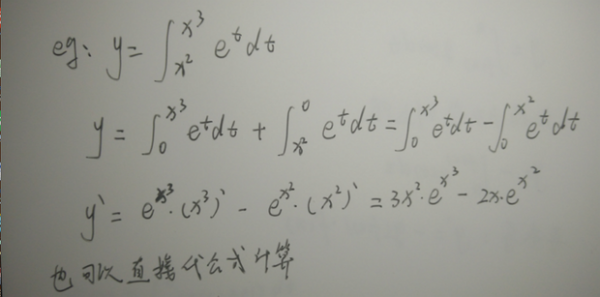 eg: y = ∫_{x²}^{x³} e^t dt
y = ∫_0^{x³} e^t dt + ∫_{x²}^0 e^t dt = ∫_0^{x³} e^t dt - ∫_0^{x²} e^t dt
y` = e^{x³}·(x³)` - e^{x²}·(x²)` = 3x²·e^{x³} - 2x·e^{x²}
也可以直接代公式计算